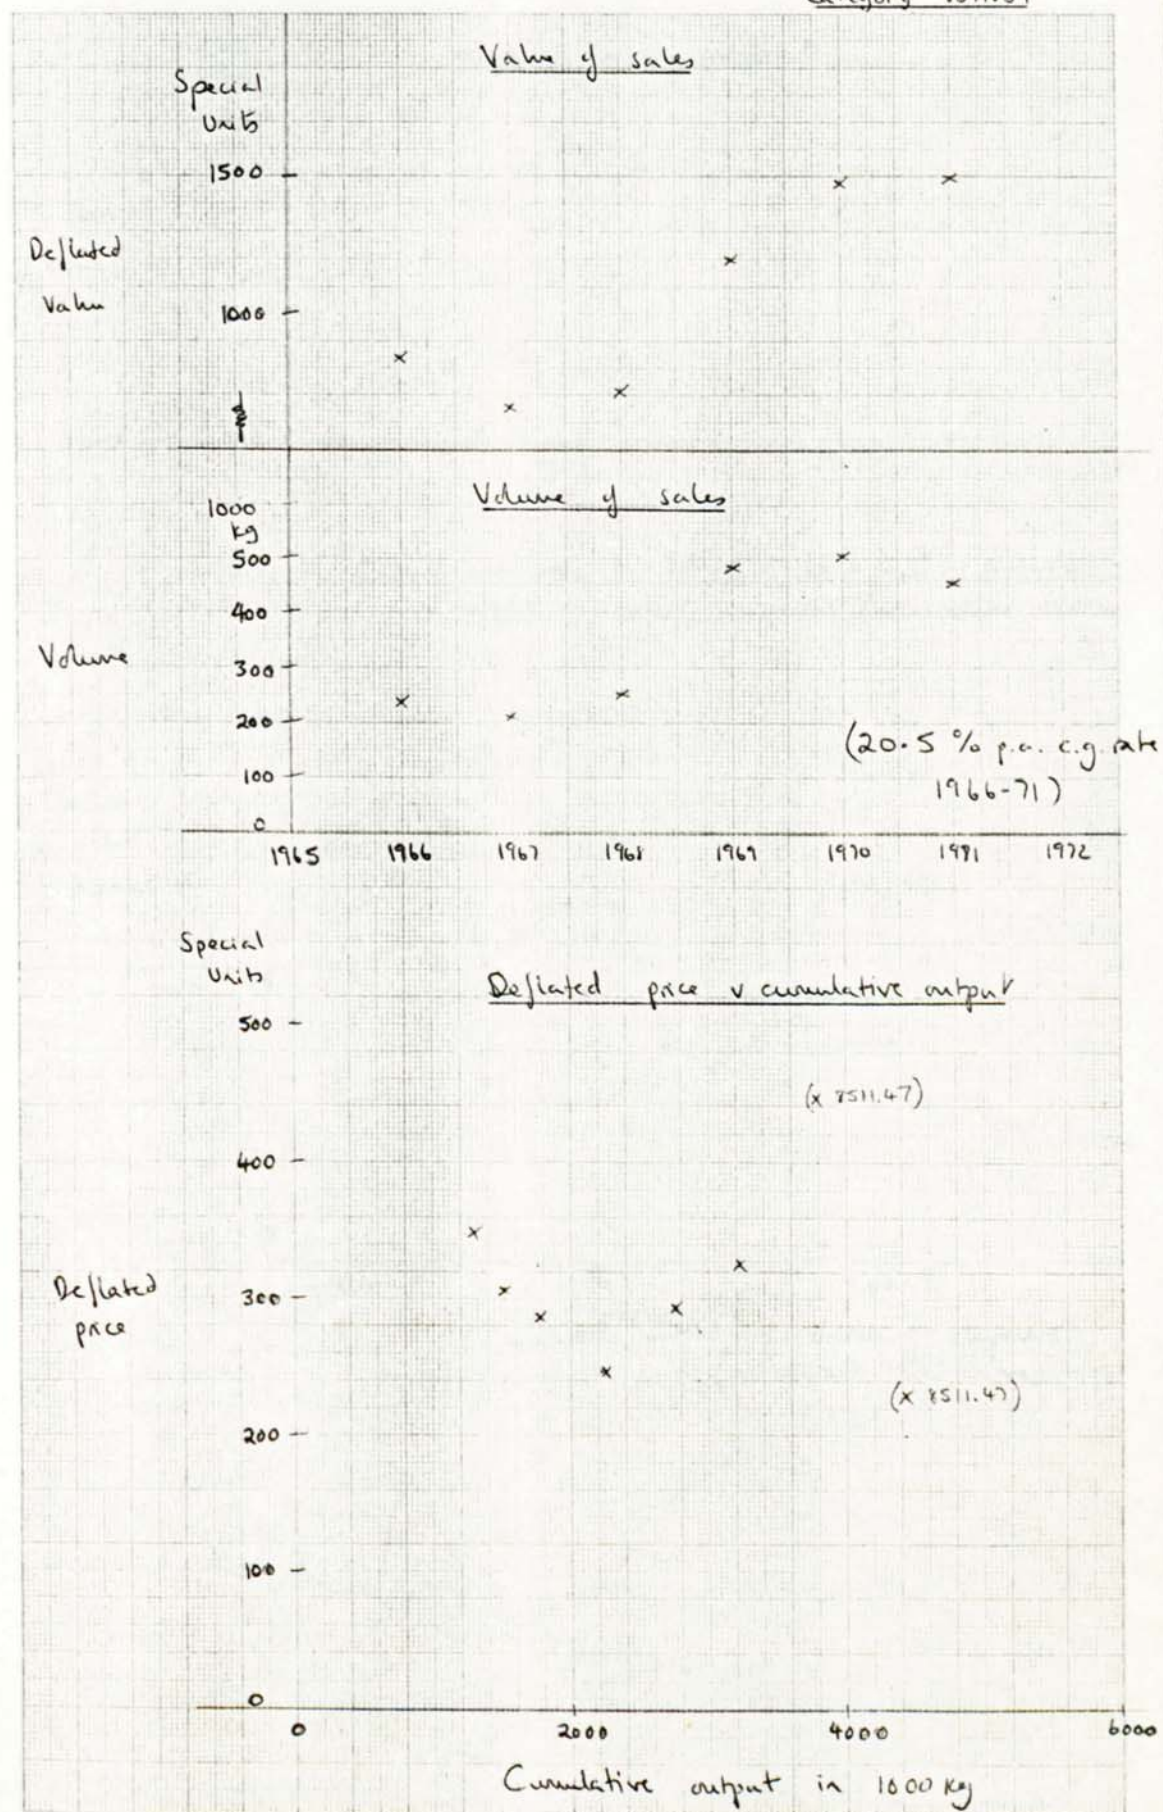 Category
Value of sales
Special
Units
1500
Deflated
Value
1000
Volume of sales
1000
kg
500
400
Volume
300
200
(20.5 % p.a. c.g. rate
1966-71)
100
0
1965 1966 1967 1968 1969 1970 1971 1972
Special
Units
Deflated price v cumulative output
500
(x 8511.47)
400
Deflated
price
300
(x 8511.47)
200
100
0
0 2000 4000 6000
Cumulative output in 1000 kg